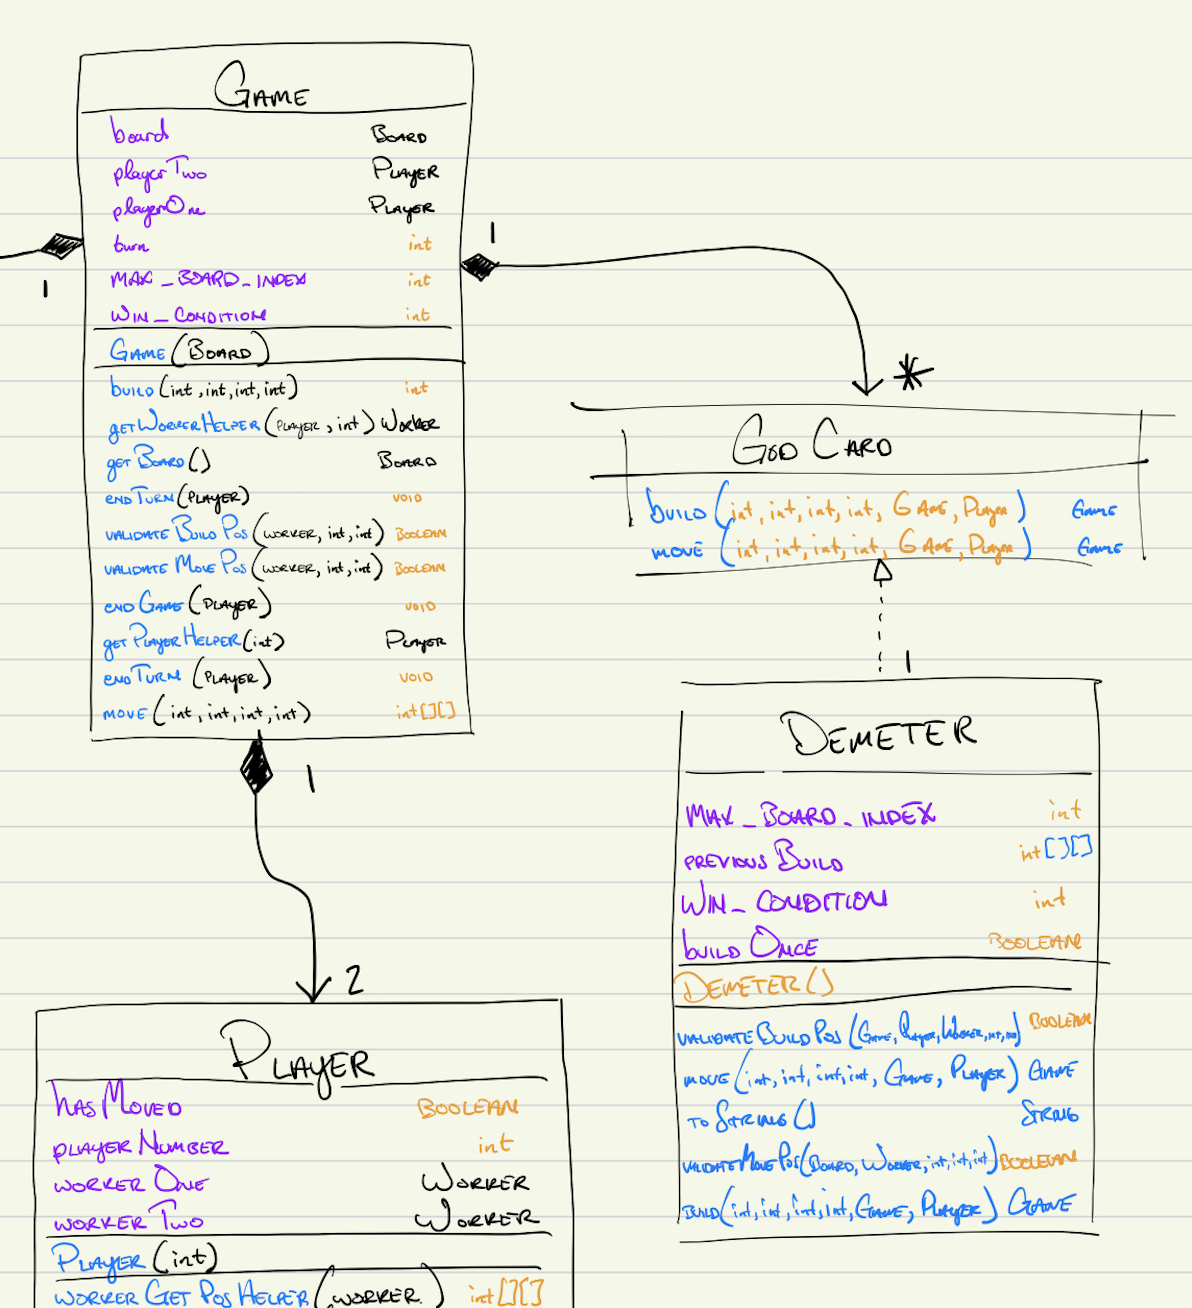 GAME
board BOARD
playerTwo PLAYER
playerOne PLAYER
turn int
MAX_BOARD_INDEX int
WIN_CONDITION int
GAME (BOARD)
BUILD (int, int, int, int) int
getWORKERHELPER (PLAYER, int) WORKER
get BOARD () BOARD
endTURN (PLAYER) VOID
VALIDATE BUILD POS (WORKER, int, int) BOOLEAN
VALIDATE MOVE POS (WORKER, int, int) BOOLEAN
END GAME (PLAYER) VOID
GET PLAYER HELPER (int) PLAYER
END TURN (PLAYER) VOID
MOVE (int, int, int, int) int[][]
1
1
*
GOD CARD
BUILD (int, int, int, int, GAME, Player) Game
MOVE (int, int, int, int, GAME, Player) Game
1
DEMETER
MAX_BOARD_INDEX int
PREVIOUS BUILD int[][]
WIN_CONDITION int
BUILD ONCE BOOLEAN
DEMETER ()
VALIDATE BUILD POS (GAME, PLAYER, WORKER, int, int) BOOLEAN
MOVE (int, int, int, int, GAME, PLAYER) GAME
TO STRING () STRING
VALIDATE MOVE POS (BOARD, WORKER, int, int, int) BOOLEAN
BUILD (int, int, int, int, GAME, PLAYER) GAME
1
2
PLAYER
HAS MOVED BOOLEAN
PLAYER NUMBER int
WORKER ONE WORKER
WORKER TWO WORKER
PLAYER (int)
WORKER GET POS HELPER (WORKER) int[][]